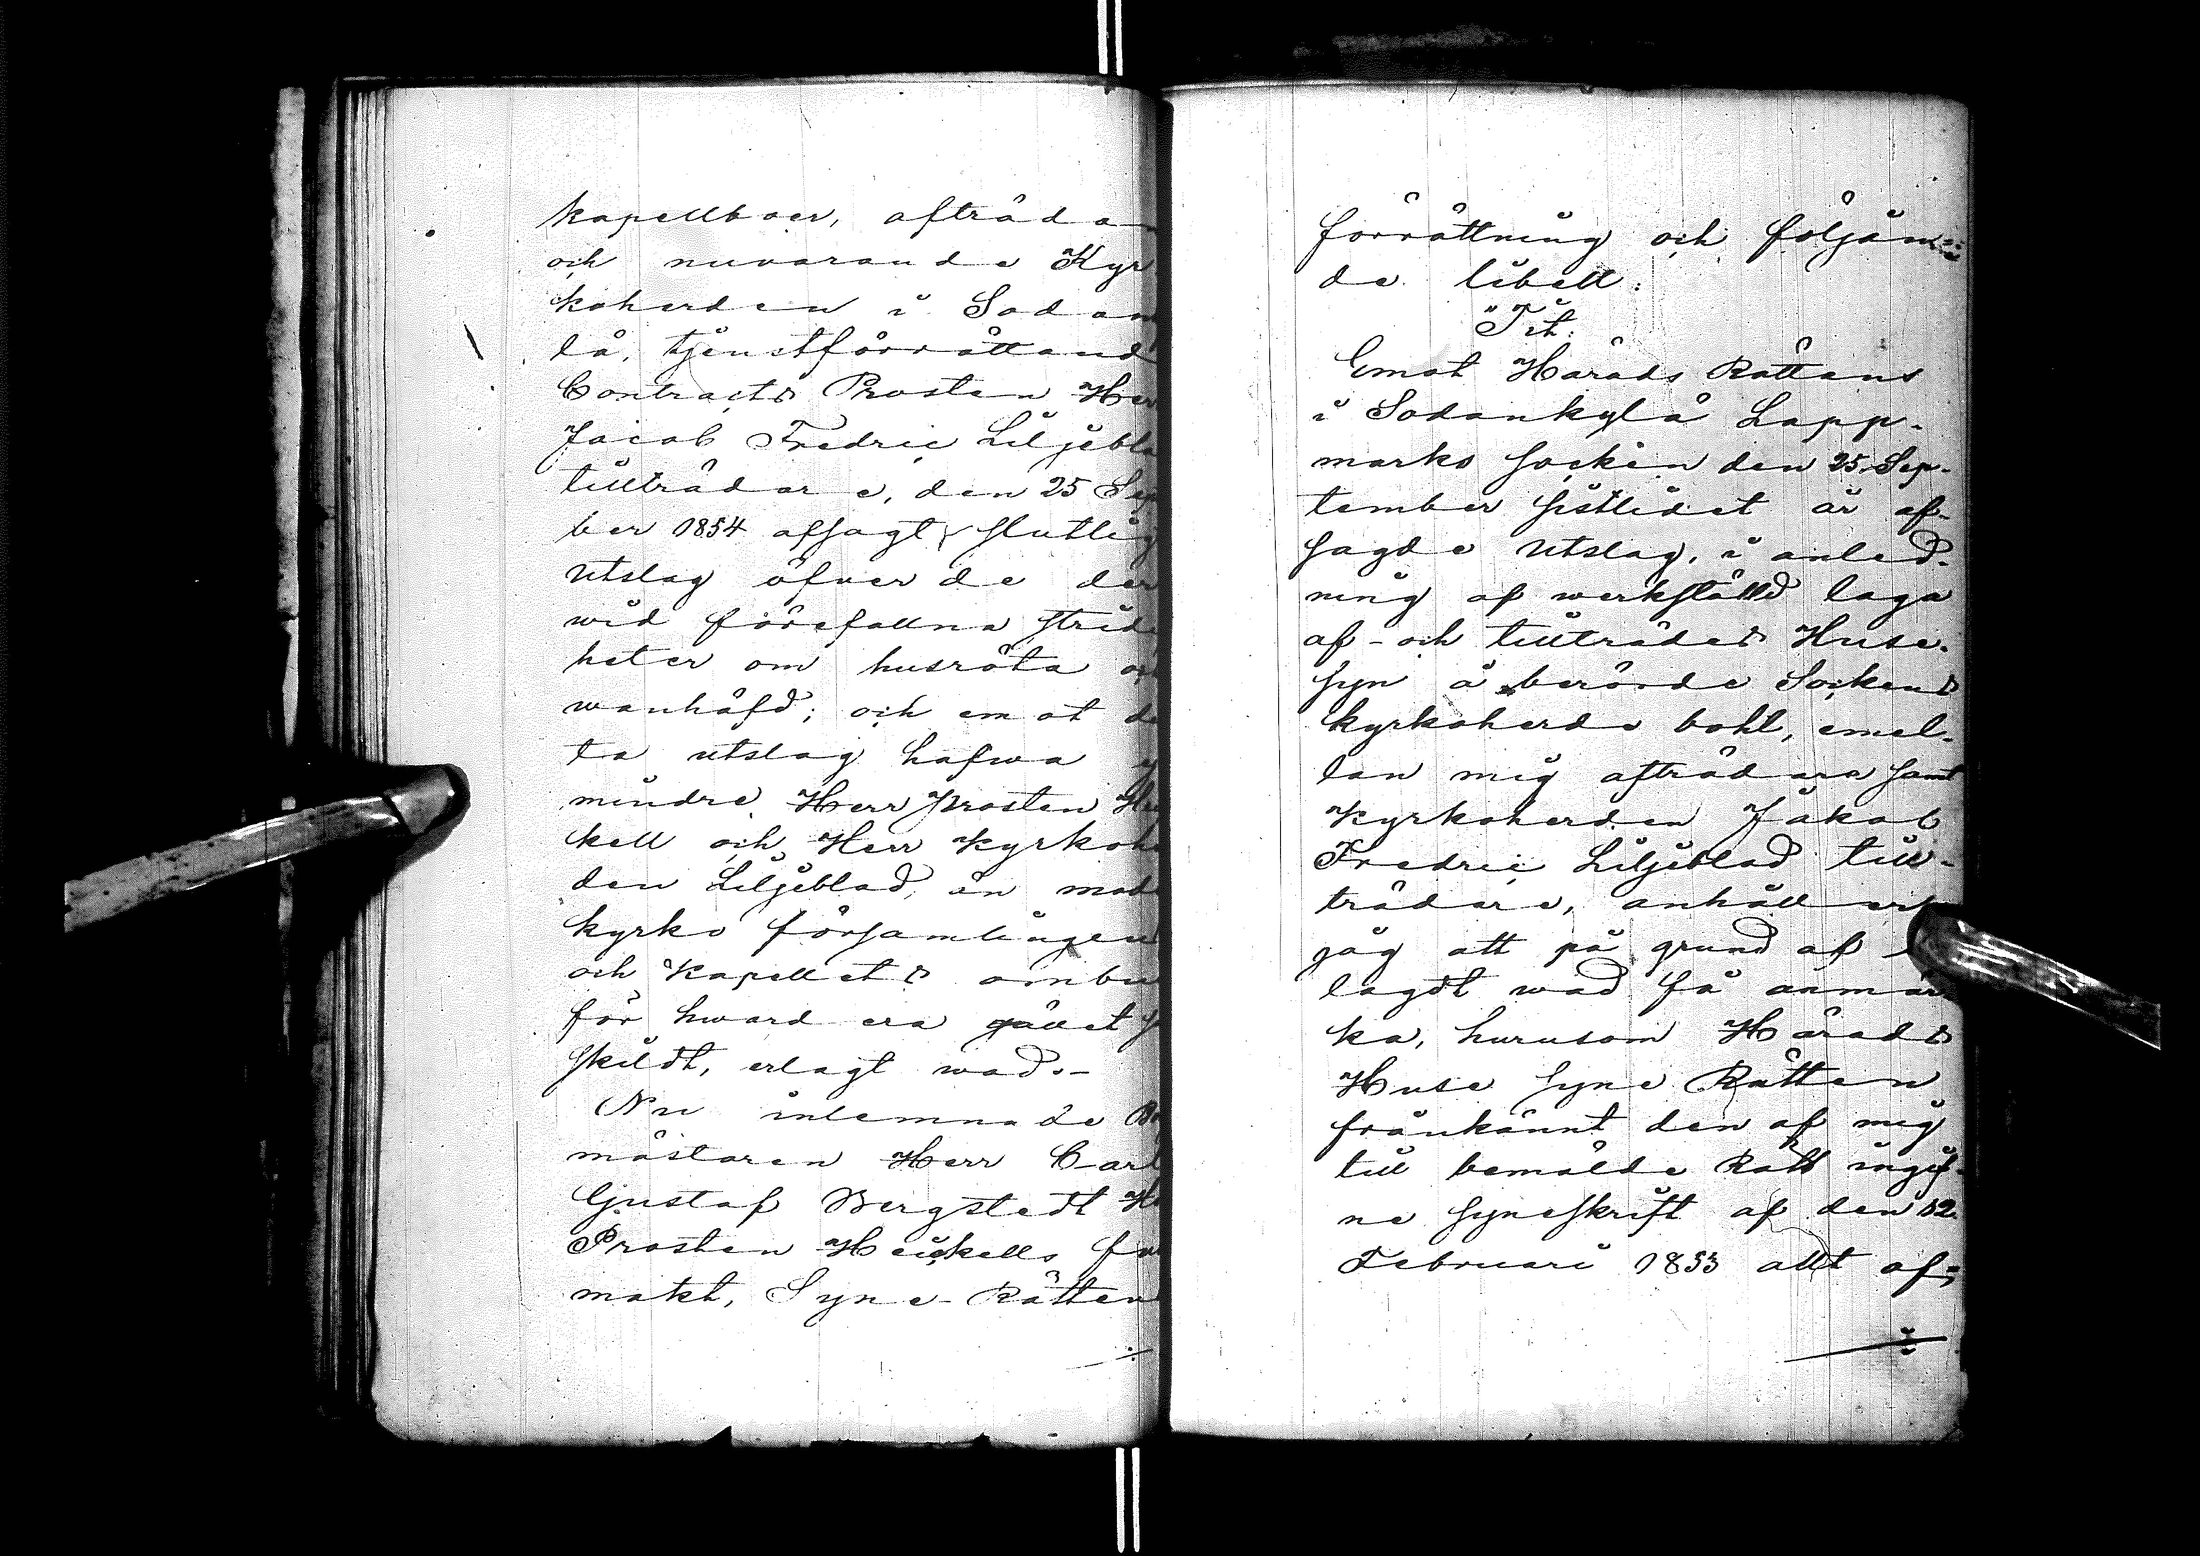 kapellboer, afträda
och nuvarande Kyr
koherden i Sodan
lä, tjenstförrättand
Contracts Prosten Her
Jacob Fredric Liljebla
tillträdare, den 25 Sep
ber 1854 afsagt slutlig
utslag öfver de der
wid förefallna strid
heter om husröta oc
wanhäfd; och emot de
ta utslag hafwa
mindre Herr Prosten He
kell och Herr Kyrkohe
den Liljeblad, än mod
kyrko församlingen
och Kapellets ombu
för hward era gället s
skildt, erlagt wad.-
Nu inlemnade B
mästaren Herr Carl
Gustaf Bergstedt H
Prosten Heickells fu
makt, Syne-Rätten
förrättning och följan=
de libell:
"Tit:
Emot Härads Rättens
i Sodankylä Lapp-
marks socken den 25 Sep-
tember sistlidet år af-
sagde utslag, i anled-
ning af werkställd laga
af- och tillträdes Huse-
syn å berörde Sockens
kyrkoherde bohl, emel-
lan mig afträdare samt
Kyrkoherden Jakob
Fredric Liljeblad till-
trädare, anhåller
jag att på grund af
lagdt wad få anmär
ka, hurusom Härads
Huse syne Rätten
frånkännt den af mig
till bemälde Rätt ingif-
ne syneskrift af den 12
Februari 1853 allt af=